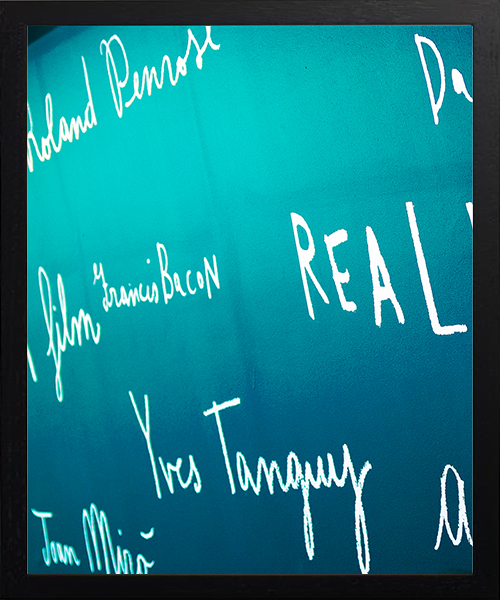 Roland Penrose
Da
REAL
film
Francis Bacon
Yves Tanguy
a
Joan Miró